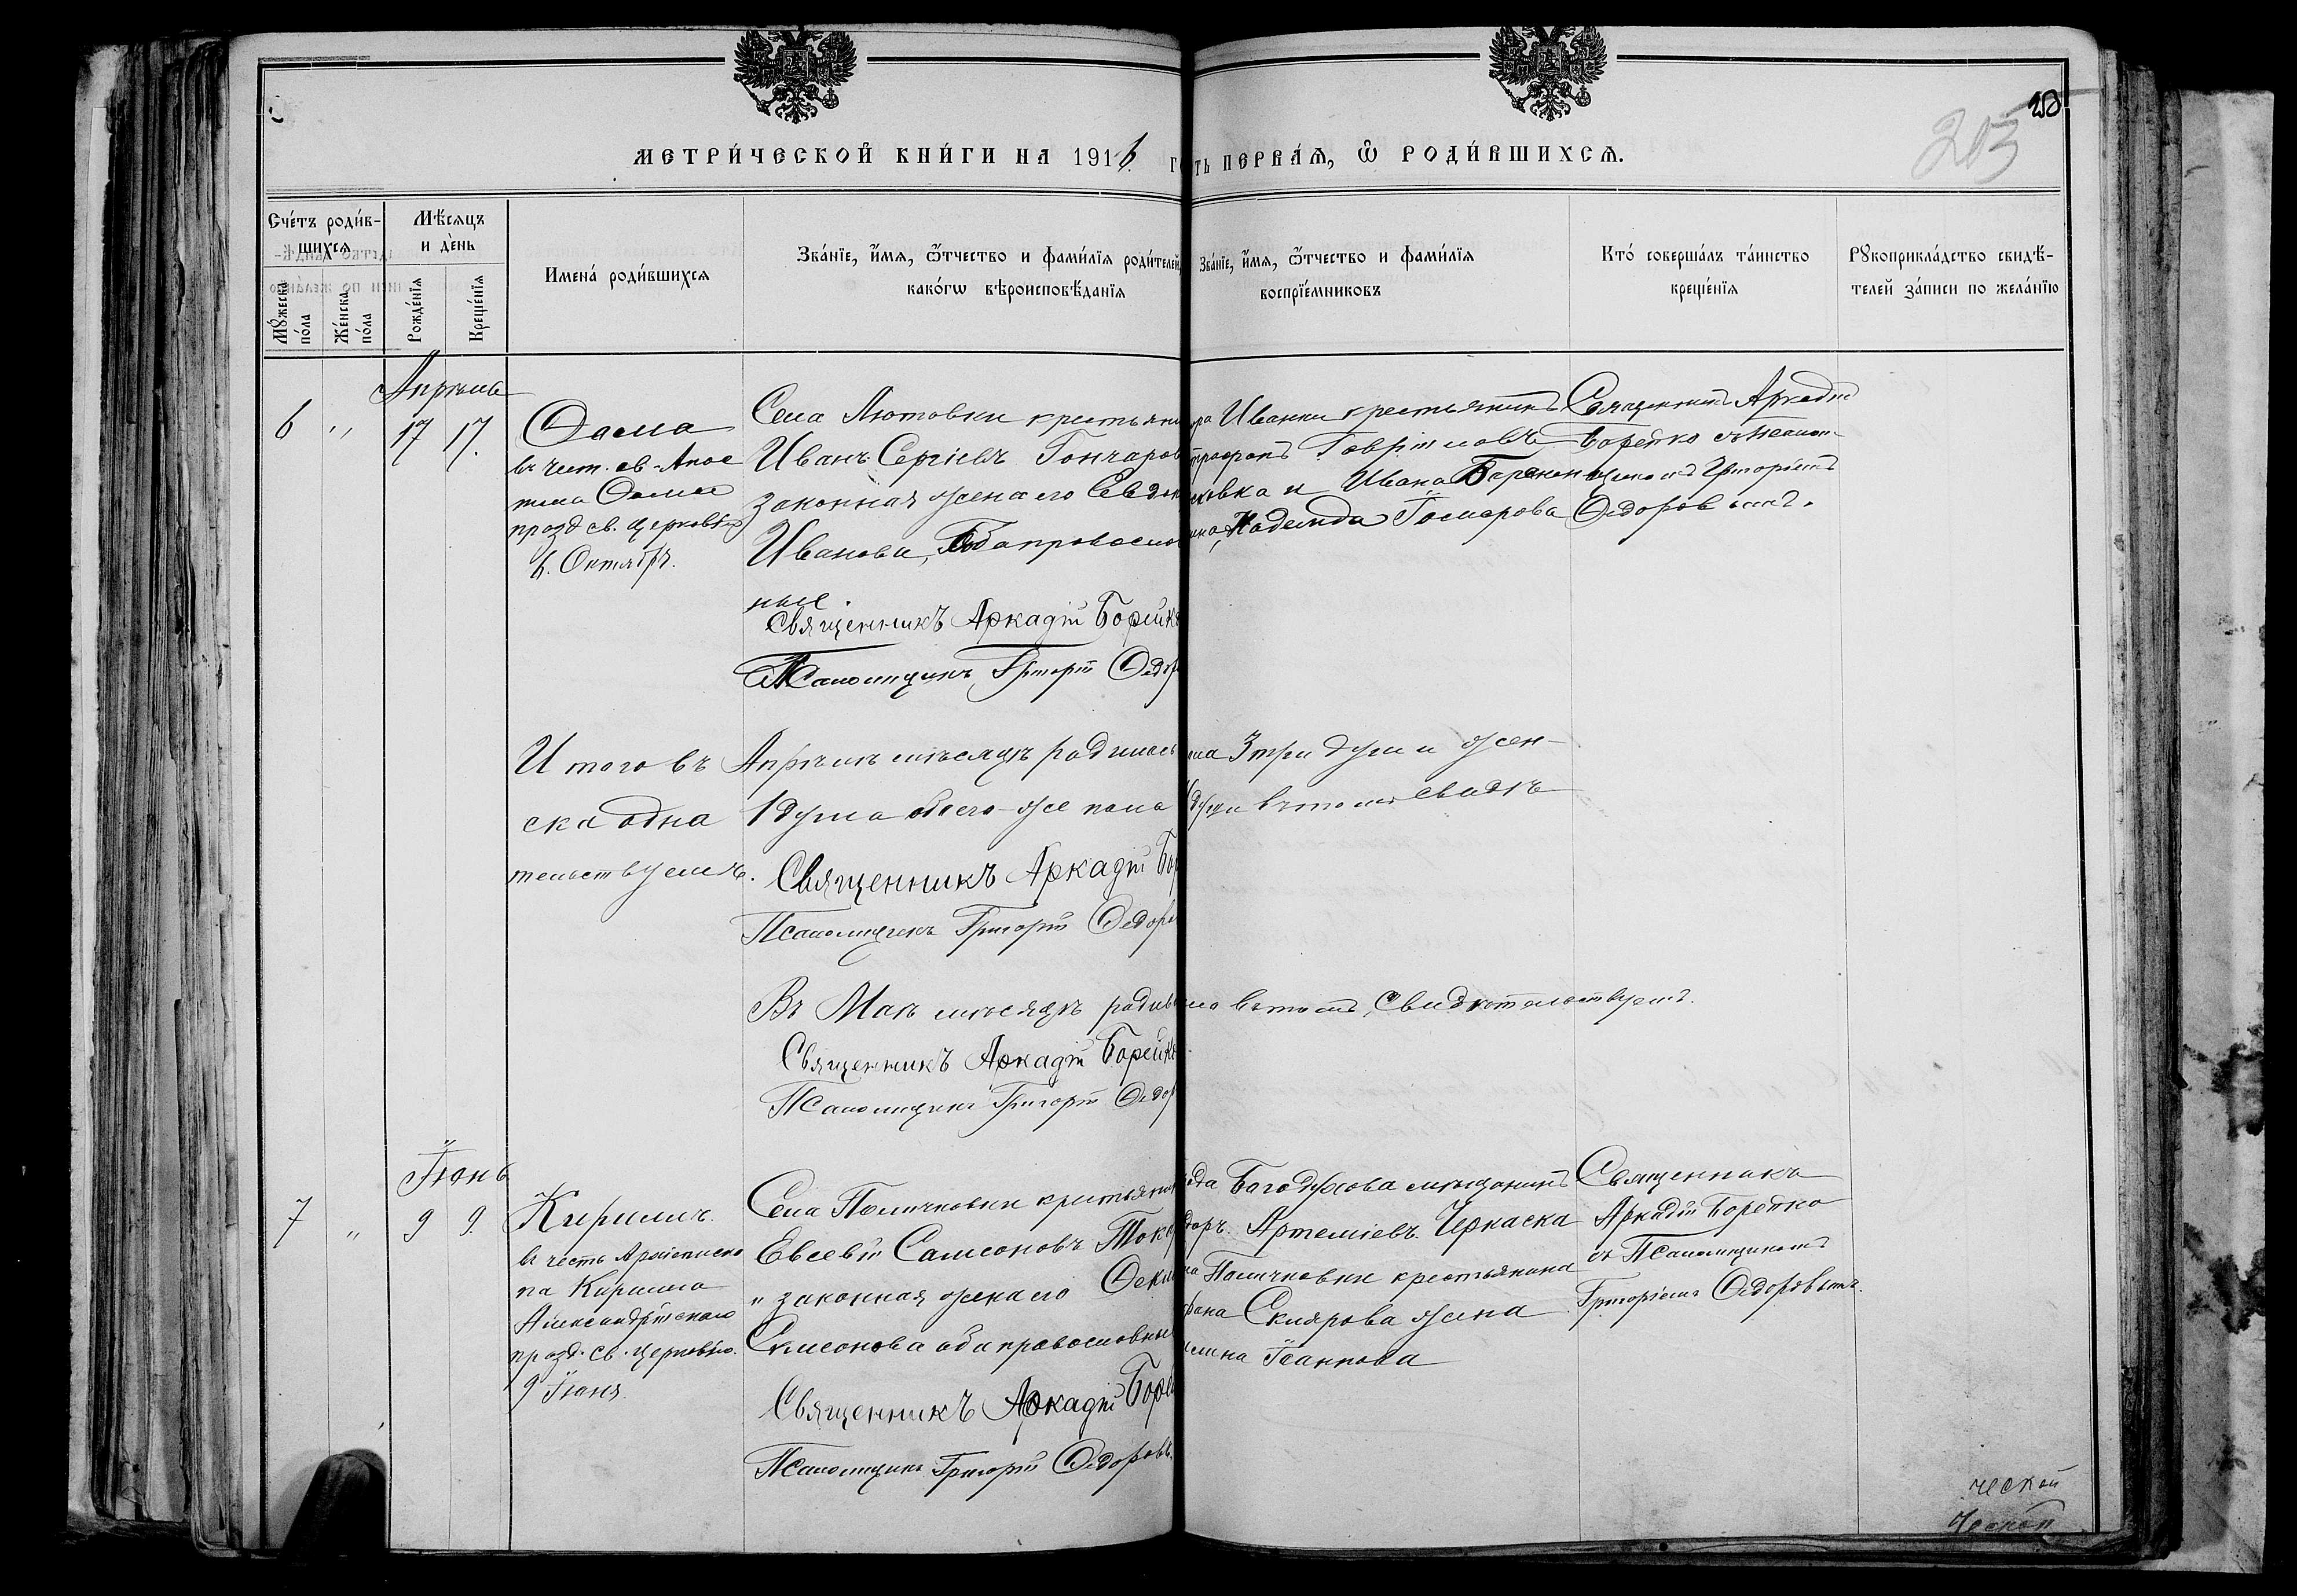 МЕТРИ́ЧЕСКОЙ КНИ́ГИ НА 1916.
ТЬ ПЕРВАѦ, Ѿ РОДИ́ВШИХСѦ.
203
Сче́тъ роди́в-
шихсѧ
Мꙋ́жеска по́ла
Же́нска по́ла
Мѣ́сѧцъ
и де́нь
Рожде́нїѧ
Креще́нїѧ
Имена́ роди́вшихсѧ
Зва́нїе, и́мѧ, ѿ́тчество и фами́лїѧ роди́телей,
како́гѡ вѣроисповѣ́данїѧ
Зва́нїе, и́мѧ, ѿ́тчество и фами́лїѧ
воспрїе́мниковъ
Кто́ соверша́лъ та́инство
креще́нїѧ
Рꙋкоприкла́дство свидѣ́-
телей за́писи по жела́нїю
Апрѣль
6 „ 17 17.
Ѳома
въ чест. св. Апос
тола Ѳомы
празд св. церковью
6. Октября.
Села Лютовки крестьяни
Иванъ Сергіевъ Гончаров
законная жена его Евдок
Иванова, Оба православ
ные.
Священникъ Аркадій Борейк
Псаломщикъ Григорій Ѳедор
ра Иванки крестьянинъ
трофанъ Гавріиловъ
ковка и Ивана
Надежда Гончарова
Священникъ Аркадій
Борейко съ Псалом
щикомъ Григоріемъ
Ѳедоровымъ.
Итого въ Апрѣлѣ мѣсяцѣ родилось
ла 3 три души и жен-
ска одна 1 душа обоего-же пола
души въ томъ свидѣ
тельствуемъ.
Священникъ Аркадій Бор
Псаломщикъ Григорій Ѳедоро
Въ Маѣ мѣсяцѣ родив
ло въ томъ Свидѣтельствуемъ.
Священникъ Аркадій Борейк
Псаломщикъ Григорій Ѳедор
Іюнь
7 „ 9 9.
Кириллъ.
въ честь Архіеписко
па Кирилла
Александрійскаго
празд. св. церковью.
9 Іюня.
Села Поличковки крестьянин
Евсевій Самсоновъ Тока
„ законная жена его Ѳекл
Самсонова оба православны
Священникъ Аркадій Боре
Псаломщикъ Григорій Ѳедоровъ.
ода Богодухова мѣщанинъ
доръ Артеміевъ Черкаска
ла Поличковки крестьянина
фана Склярова жена
Священникъ
Аркадій Борейко
съ Псаломщикомъ
Григоріемъ Ѳедоровымъ.
ческой